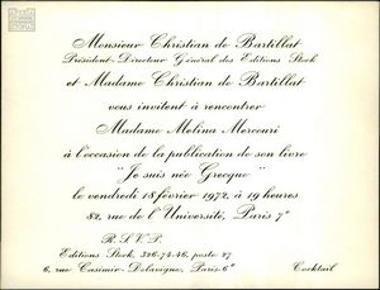 Monsieur Christian de Bartillat
Président-Directeur Général des Editions Stock
et Madame Christian de Bartillat
vous invitent à rencontrer
Madame Melina Mercouri
à l'occasion de la publication de son livre
"Je suis née Grecque"
le vendredi 18 février 1972, à 19 heures
82, rue de l'Université, Paris 7e
R.S.V.P.
Editions Stock, 326-74-46, poste 27
6, rue Casimir-Delavigne, Paris-6e Cocktail